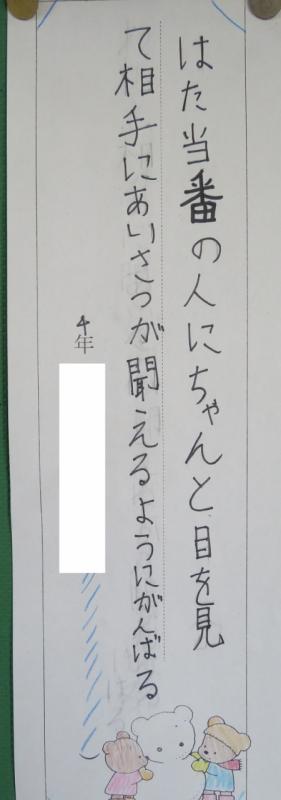 はた当番の人にちゃんと目を見
て相手にあいさつが聞えるようにがんばる
4年